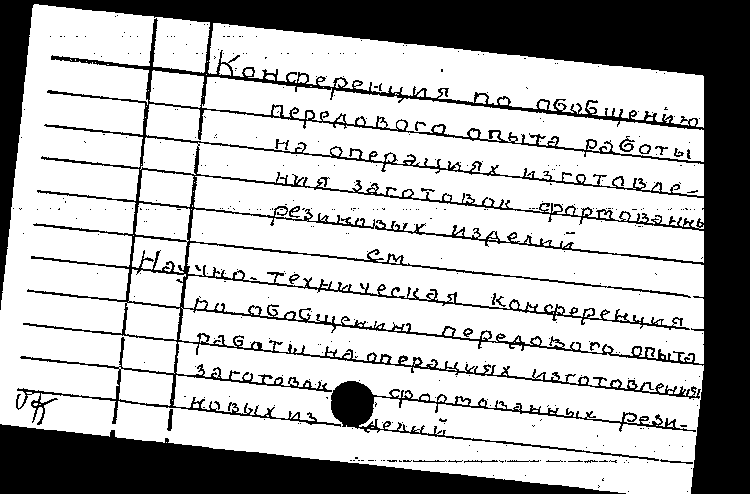 Конференция по обобщению
передового опыта работы
на операциях изготовле-
ния заготовок формованны
резиновых изделий
см.
Научно-техническая конференция
по обобщению передового опыта
работы на операциях изготовления
заготовок формованных рези-
новых изделий